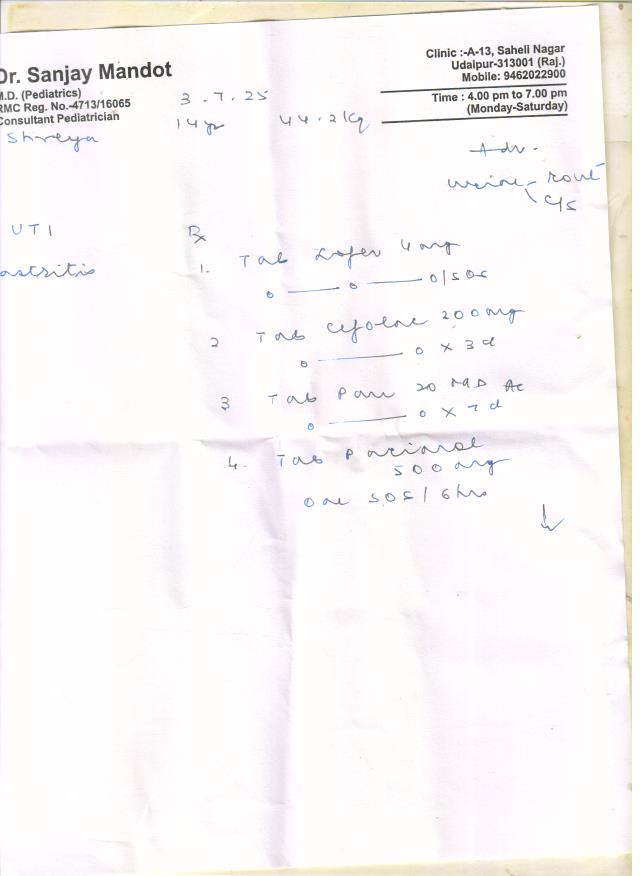 Dr. Sanjay Mandot
M.D. (Pediatrics)
RMC Reg. No.-4713/16065
Consultant Pediatrician
Clinic :-A-13, Saheli Nagar
Udaipur-313001 (Raj.)
Mobile: 9462022900
Time : 4.00 pm to 7.00 pm
(Monday-Saturday)
3.7.25
Shreya 14 yr 44.2 kg
Adv.
Urine - Rout
C/S
UTI
astritis
℞
1. Tab Zofer 4 mg
o — o — o/SOS
2 Tab Cefolac 200 mg
o — o x 3 d
3 Tab Pan 20 Ac
o — o x 7 d
4. Tab
500 mg
one SOS/6 hrs